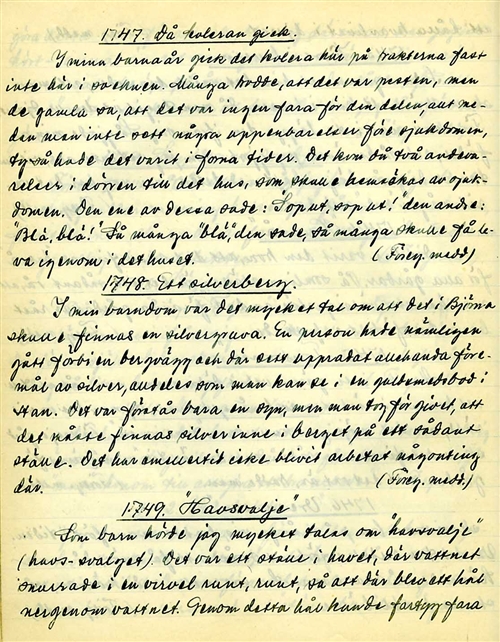 1747. Då koleran gick.
I mina barnaår gick det kolera här på trakterna fast
inte här i socknen. Många trodde, att det var pesten, men
de gamla sa, att det var ingen fara för den delen, aut me-
dan man inte sett några uppenbarelser före sjukdomen,
ty så hade det varit i forna tider. Det kom då två andeva-
relser i dörren till det hus, som skulle hemsökas av sjuk-
domen. Den ene av dessa sade: "Sop ut, sop ut!" den andre:
"Blå, blå!" Så många "blå", den sade, så många skulle få le-
va igenom i det huset. (Föreg. medd.)
1748. Ett silverberg.
I min barndom var det mycket tal om att det i Björna
skulle finnas en silvergruva. En person hade nämligen
gått förbi en bergvägg och där sett uppradat allehanda före-
mål av silver, alldeles som man kan se i en guldsmedsbod i
stan. Det var förstås bara en syn, men man tog för givet, att
det måste finnas silver inne i berget på ett sådant
ställe. Det har emellertid icke blivit arbetat någonting
där. (Föreg. medd.)
1749. "Havsvalje"
Som barn hörde jag mycket talas om "havsvalje"
(havs-svalget). Det var ett ställe i havet, där vattnet
snurrade i en virvel runt, runt, så att där blev ett hål
nergenom vattnet. Genom detta hål kunde fartyg fara